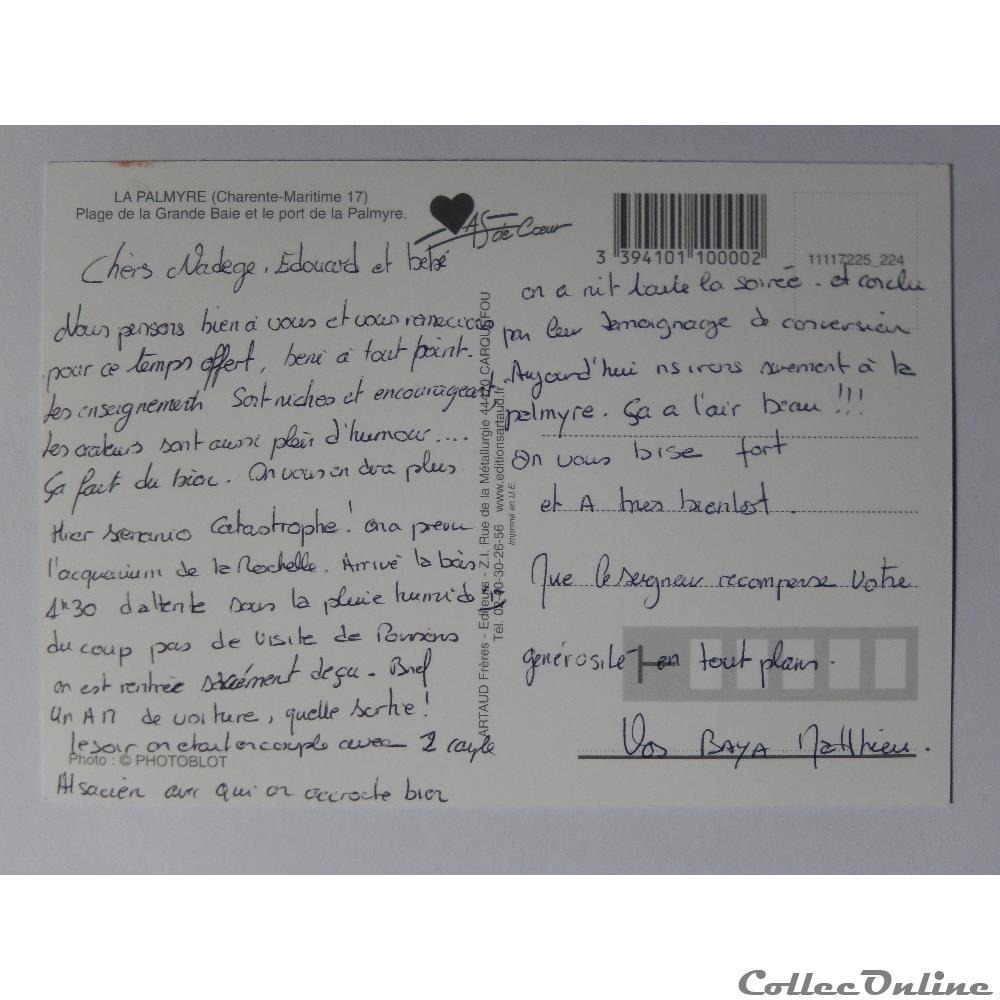 LA PALMYRE (Charente-Maritime 17)
Plage de la Grande Baie et le port de la Palmyre.
AS de Cœur
3 394101 100002
11117225_224
Chèrs Nadege, Edouard et bébé
Nous pensons bien à vous et vous remercions
pour ce temps offert, beni à tout point.
Les enseignements Sont riches et encourageant,
Les orateurs sont aussi plein d'humour....
Ça fait du bien. On vous en dira plus
Hier senario Catastrophe! on a prevu
l'acquarium de la Rochelle. Arrivé la bàs
1h30 d'attente sous la pluie humide
du coup pas de visite de Poissons
on est rentrée sacrément deçu. Bref
Un AM de voiture, quelle sortie!
le soir on etait en couple avec 2 couple
Alsacien avec qui on accroche bien
ARTAUD Frères - Editeurs - Z.I. Rue de la Métallurgie 44470 CARQUEFOU
Tél. 02-40-30-26-56 www.editionsartaud.fr
Imprimé en U.E.
Photo : © PHOTOBLOT
on a rit toute la soirée. et conclu
par leur temoignage de conversion
Aujourd'hui ns irons surement à la
palmyre. Ça a l'air beau !!!
On vous bise fort
et A tres bientost.
Que le seigneur recompense votre
générosité en tout plan.
Vos BAYA Matthieu.
CollecOnline